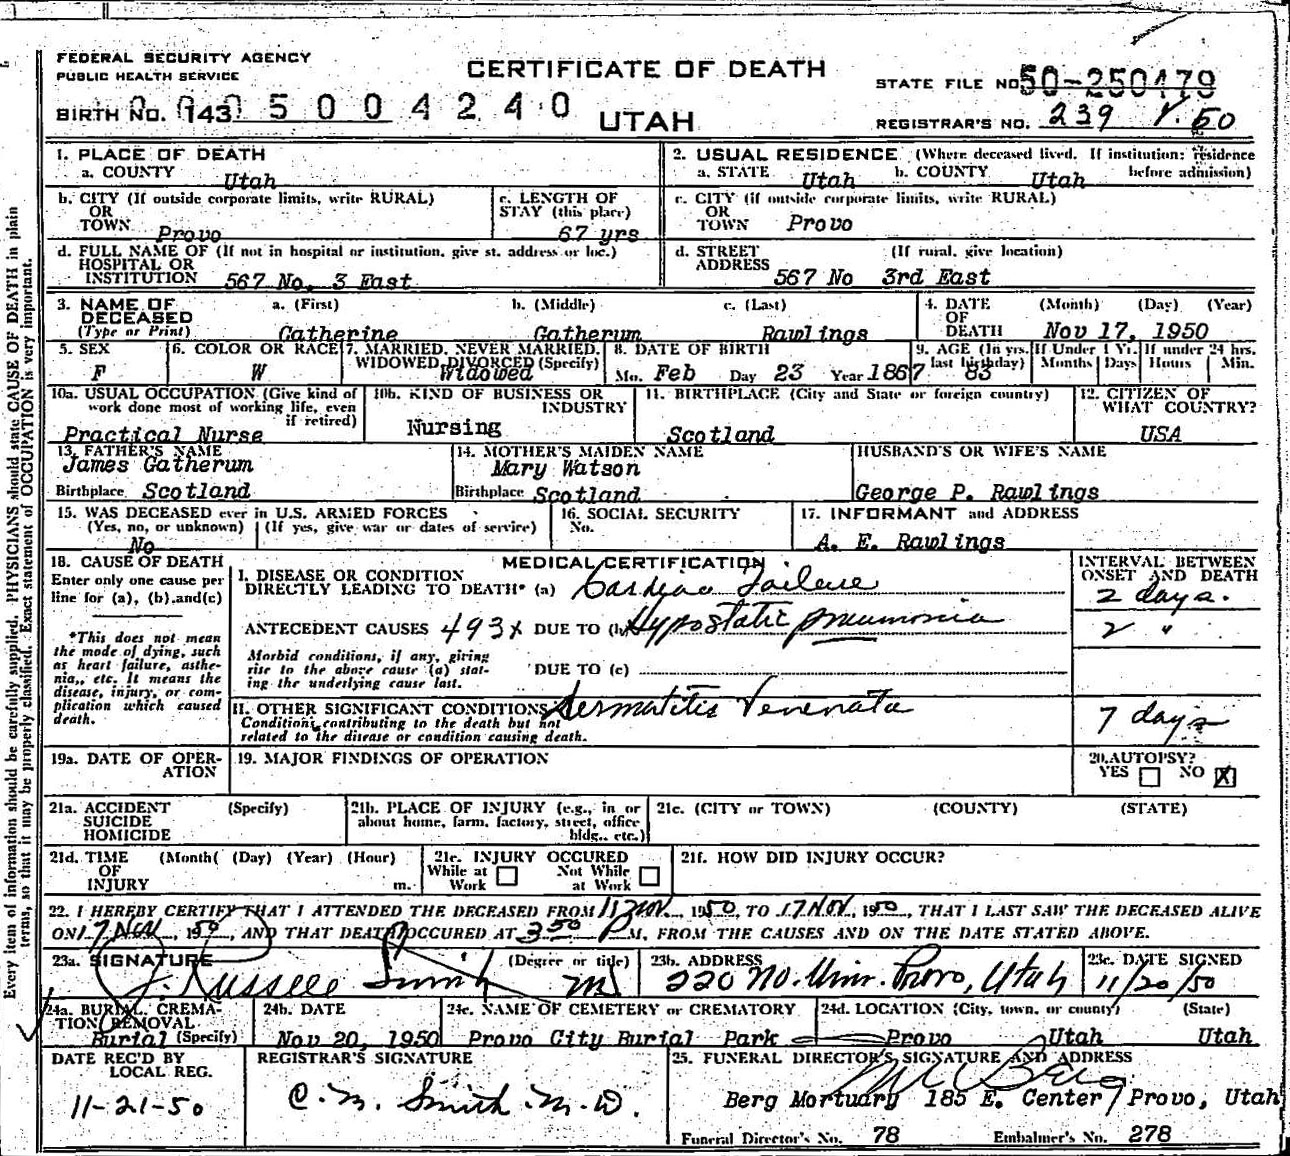 FEDERAL SECURITY AGENCY
PUBLIC HEALTH SERVICE
CERTIFICATE OF DEATH
STATE FILE NO. 50-250479
BIRTH NO. 143 5 0 0 4 2 4 0
UTAH
REGISTRAR'S NO. 239
1. PLACE OF DEATH
a. COUNTY Utah
2. USUAL RESIDENCE (Where deceased lived. If institution: residence before admission)
a. STATE Utah b. COUNTY Utah
b. CITY (If outside corporate limits, write RURAL)
OR
TOWN Provo
c. LENGTH OF
STAY (this place)
67 yrs
c. CITY (if outside corporate limits, write RURAL)
OR
TOWN Provo
d. FULL NAME OF (If not in hospital or institution, give st. address or loc.)
HOSPITAL OR
INSTITUTION 567 No. 3 East
d. STREET (If rural, give location)
ADDRESS 567 No 3rd East
3. NAME OF DECEASED (Type or Print)
a. (First) b. (Middle) c. (Last)
Catherine Gatherum Rawlings
4. DATE OF DEATH (Month) (Day) (Year)
Nov 17, 1950
5. SEX
F
6. COLOR OR RACE
W
7. MARRIED, NEVER MARRIED,
WIDOWED, DIVORCED (Specify)
Widowed
8. DATE OF BIRTH
Mo. Feb Day 23 Year 1867
9. AGE (In yrs. last birthday) 83
If Under 1 Yr. Months Days
If under 24 hrs. Hours Min.
10a. USUAL OCCUPATION (Give kind of
work done most of working life, even
if retired)
Practical Nurse
10b. KIND OF BUSINESS OR
INDUSTRY
Nursing
11. BIRTHPLACE (City and State or foreign country)
Scotland
12. CITIZEN OF
WHAT COUNTRY?
USA
13. FATHER'S NAME
James Gatherum
Birthplace Scotland
14. MOTHER'S MAIDEN NAME
Mary Watson
Birthplace Scotland
HUSBAND'S OR WIFE'S NAME
George P. Rawlings
15. WAS DECEASED ever in U.S. ARMED FORCES
(Yes, no, or unknown) (If yes, give war or dates of service)
No
16. SOCIAL SECURITY
No.
17. INFORMANT and ADDRESS
A. E. Rawlings
18. CAUSE OF DEATH
Enter only one cause per
line for (a), (b), and (c)
*This does not mean
the mode of dying, such
as heart failure, asthe-
nia, etc. It means the
disease, injury, or com-
plication which caused
death.
MEDICAL CERTIFICATION
INTERVAL BETWEEN
ONSET AND DEATH
I. DISEASE OR CONDITION
DIRECTLY LEADING TO DEATH* (a) Cardiac Failure
2 days.
ANTECEDENT CAUSES 493x DUE TO (b) Hypostatic pneumonia
2 "
Morbid conditions, if any, giving
rise to the above cause (a) stat-
ing the underlying cause last.
DUE TO (c)
II. OTHER SIGNIFICANT CONDITIONS Dermatitis Venenata
Conditions contributing to the death but not
related to the disease or condition causing death.
7 days
19a. DATE OF OPER-
ATION
19. MAJOR FINDINGS OF OPERATION
20. AUTOPSY?
YES NO X
21a. ACCIDENT (Specify)
SUICIDE
HOMICIDE
21b. PLACE OF INJURY (e.g., in or
about home, farm, factory, street, office
bldg., etc.)
21c. (CITY or TOWN) (COUNTY) (STATE)
21d. TIME (Month) (Day) (Year) (Hour)
OF
INJURY m.
21e. INJURY OCCURED
While at Work Not While at Work
21f. HOW DID INJURY OCCUR?
22. I HEREBY CERTIFY THAT I ATTENDED THE DECEASED FROM 11 Nov., 1950, TO 17 NOV, 1950, THAT I LAST SAW THE DECEASED ALIVE
ON 17 Nov, 1950, AND THAT DEATH OCCURED AT 3:50 P M, FROM THE CAUSES AND ON THE DATE STATED ABOVE.
23a. SIGNATURE (Degree or title)
J. Russell Smith MD
23b. ADDRESS
220 No. Univ. Provo, Utah
23c. DATE SIGNED
11/20/50
24a. BURIAL, CREMA-
TION, REMOVAL
Burial (Specify)
24b. DATE
Nov 20, 1950
24c. NAME OF CEMETERY or CREMATORY
Provo City Burial Park
24d. LOCATION (City, town, or county) (State)
Provo Utah Utah
DATE REC'D BY
LOCAL REG.
11-21-50
REGISTRAR'S SIGNATURE
C. M. Smith M.D.
25. FUNERAL DIRECTOR'S SIGNATURE AND ADDRESS
Berg Mortuary 185 E. Center, Provo, Utah
Funeral Director's No. 78 Embalmer's No. 278
Every item of information should be carefully supplied. PHYSICIANS should state CAUSE OF DEATH in plain
terms, so that it may be properly classified. Exact statement of OCCUPATION is very important.